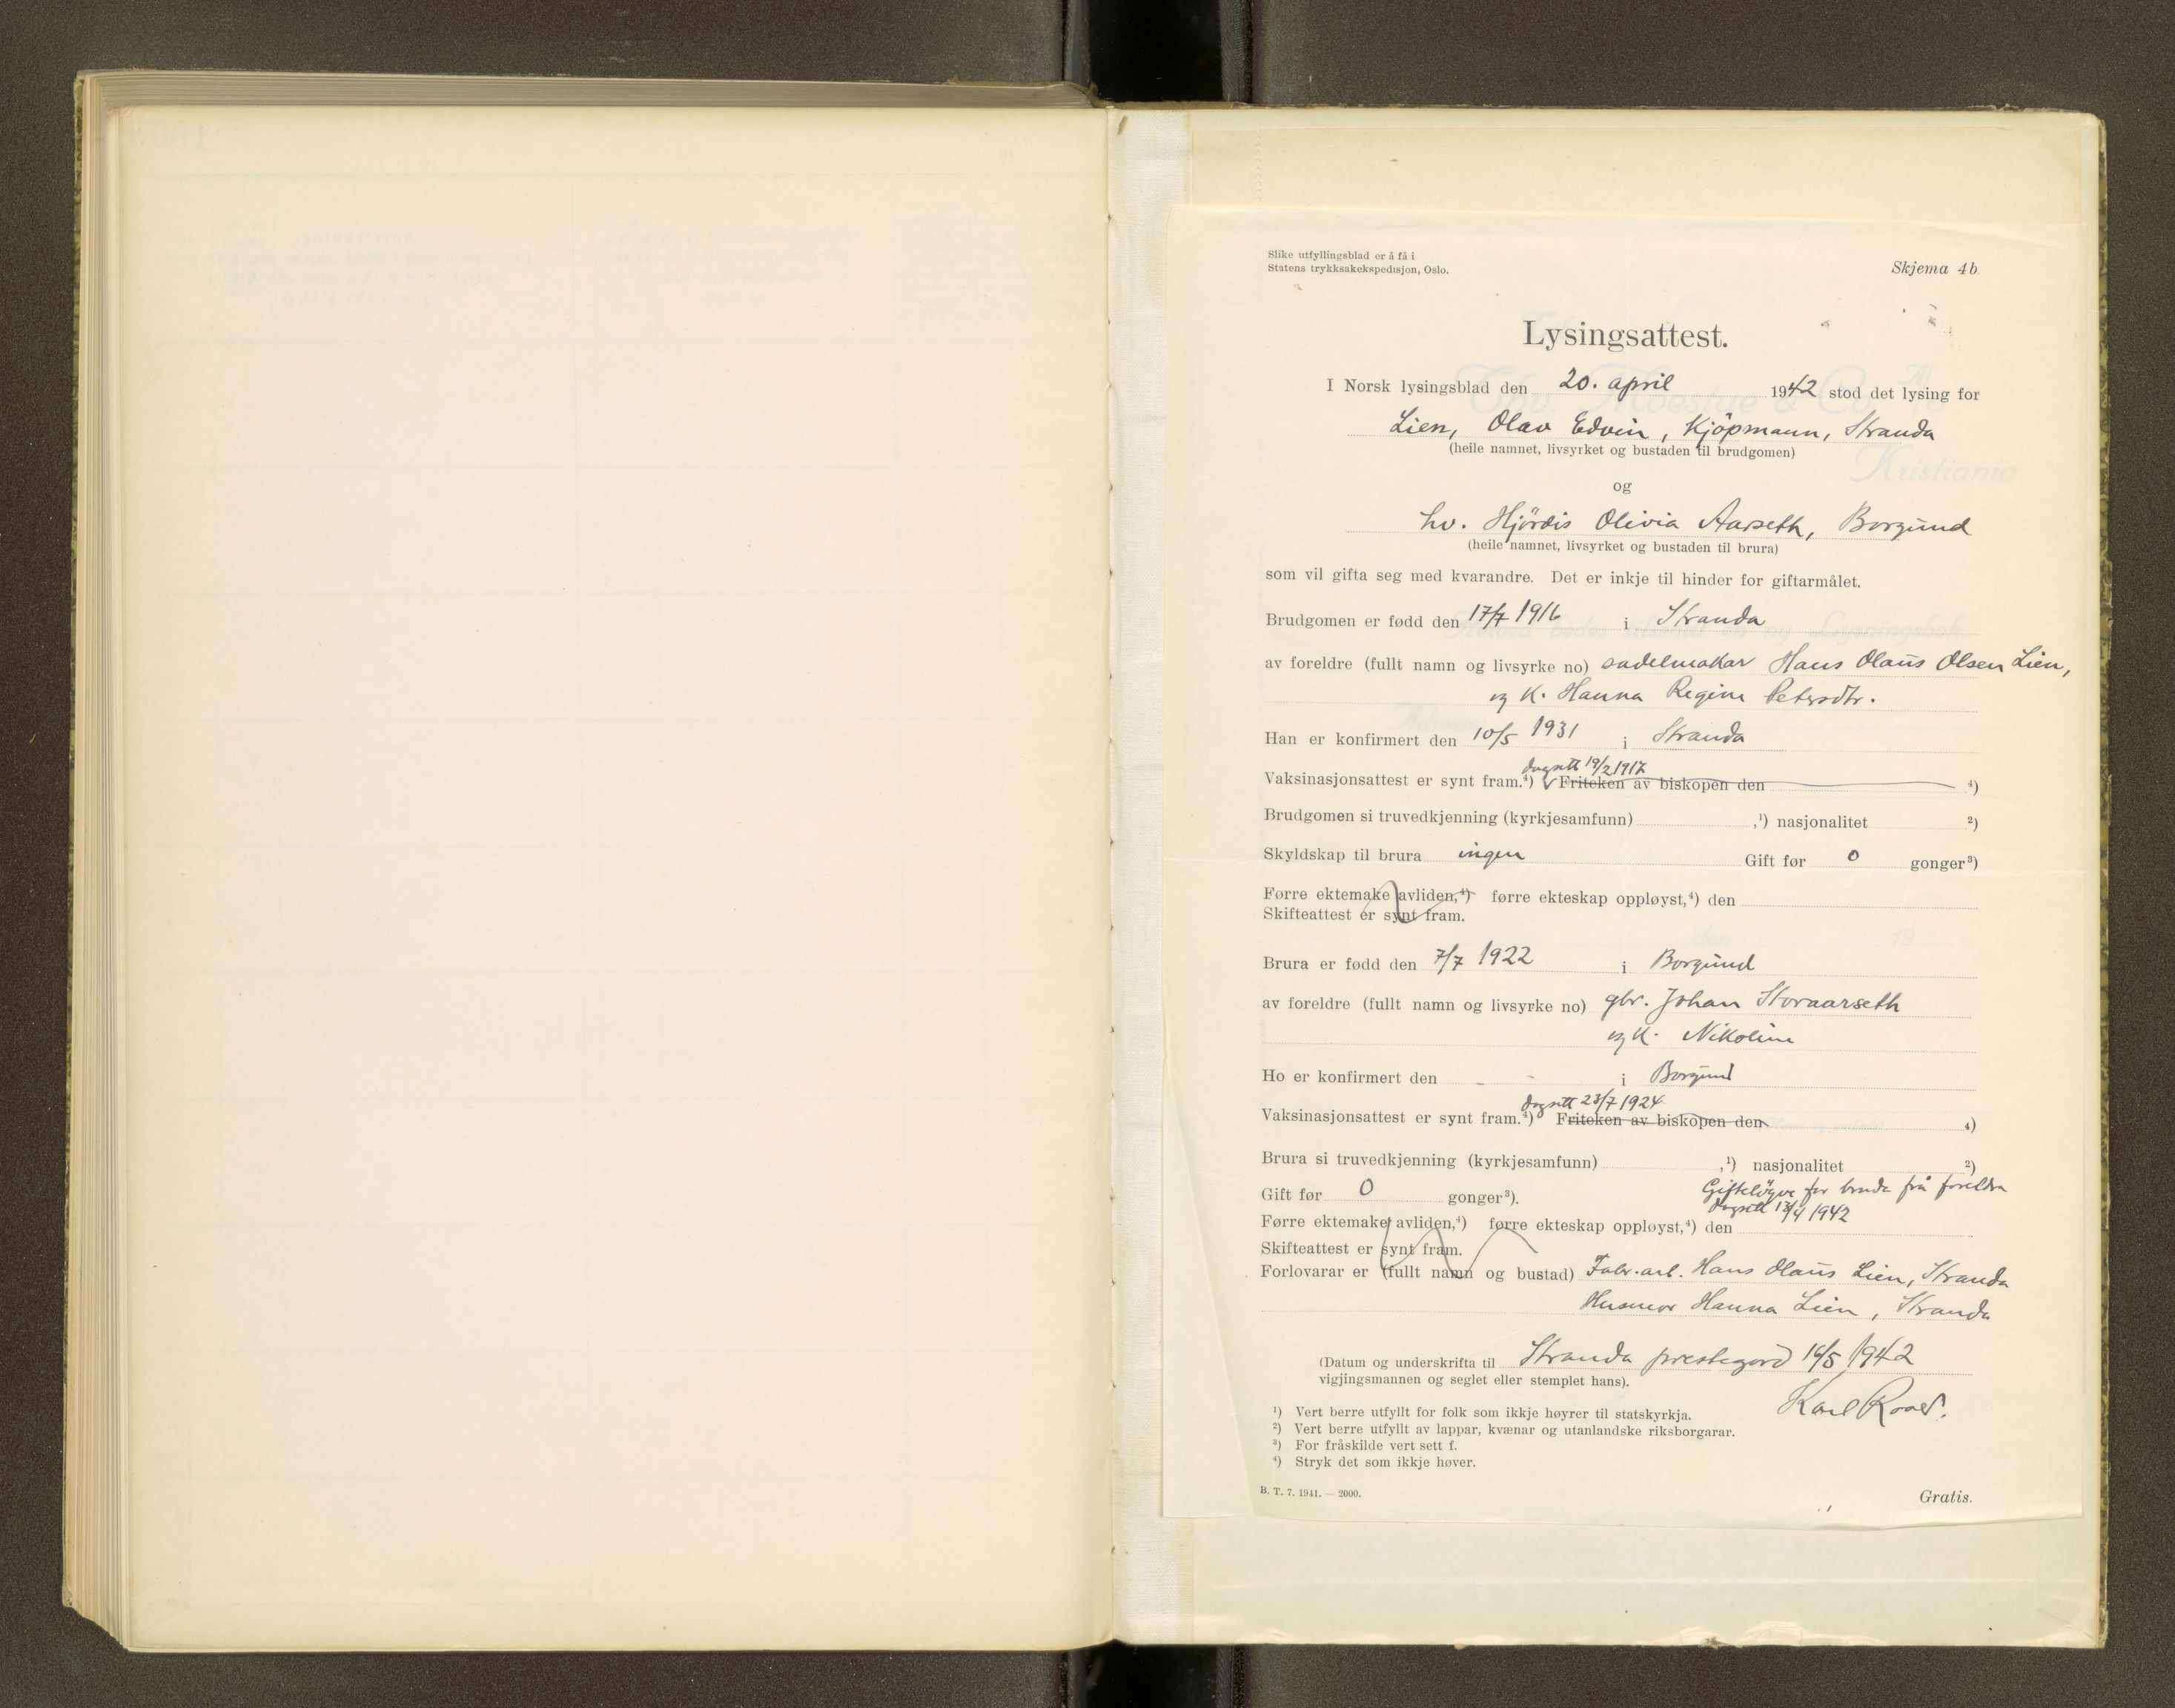 Slike utfyllingsblad er å få i
Statens trykksakekspedisjon, Oslo.
Skjema 4b
Lysingsattest.
I Norsk lysingsblad den 20. april 1942 stod det lysing for
Lien, Olav Edvin, Kjöpmann, Stranda
(heile namnet, livsyrket og bustaden til brudgomen)
og
hv. Hjördis Olivia Aarseth, Borgund
(heile namnet, livsyrket og bustaden til brura)
som vil gifta seg med kvarandre. Det er inkje til hinder for giftarmålet.
Brudgomen er fødd den 17/7 1916 i Stranda
av foreldre (fullt namn og livsyrke no) sadelmakar Hans Olaus Olsen Lien,
og k. Hanna Regine Petersdtr.
Han er konfirmert den 10/5 1931 i Stranda
dagsett 19/2 1917
Vaksinasjonsattest er synt fram.⁴) Friteken av biskopen den ⁴)
Brudgomen si truvedkjenning (kyrkjesamfunn) ,¹) nasjonalitet ²)
Skyldskap til brura ingen Gift før 0 gonger³)
Førre ektemake avliden,⁴) førre ekteskap oppløyst,⁴) den
Skifteattest er synt fram.
Brura er fødd den 7/7 1922 i Borgund
av foreldre (fullt namn og livsyrke no) gbr. Johan Storaarseth
og k. Nikoline
Ho er konfirmert den - - i Borgund
dagsett 23/7 1924
Vaksinasjonsattest er synt fram.⁴) Friteken av biskopen den ⁴)
Brura si truvedkjenning (kyrkjesamfunn) ,¹) nasjonalitet ²)
Gift før 0 gonger³). Gifteløyve for bruda frå foreldra
dagsett 13/4 1942
Førre ektemake avliden,⁴) førre ekteskap oppløyst,⁴) den
Skifteattest er synt fram.
Forlovarar er (fullt namn og bustad) Fabr.arb. Hans Olaus Lien, Stranda
Husmor Hanna Lien, Stranda
(Datum og underskrifta til Stranda prestegard 16/5 1942
vigjingsmannen og seglet eller stemplet hans).
Karl
¹) Vert berre utfyllt for folk som ikkje høyrer til statskyrkja.
²) Vert berre utfyllt av lappar, kvænar og utanlandske riksborgarar.
³) For fråskilde vert sett f.
⁴) Stryk det som ikkje høver.
B. T. 7. 1941. — 2000.
Gratis.